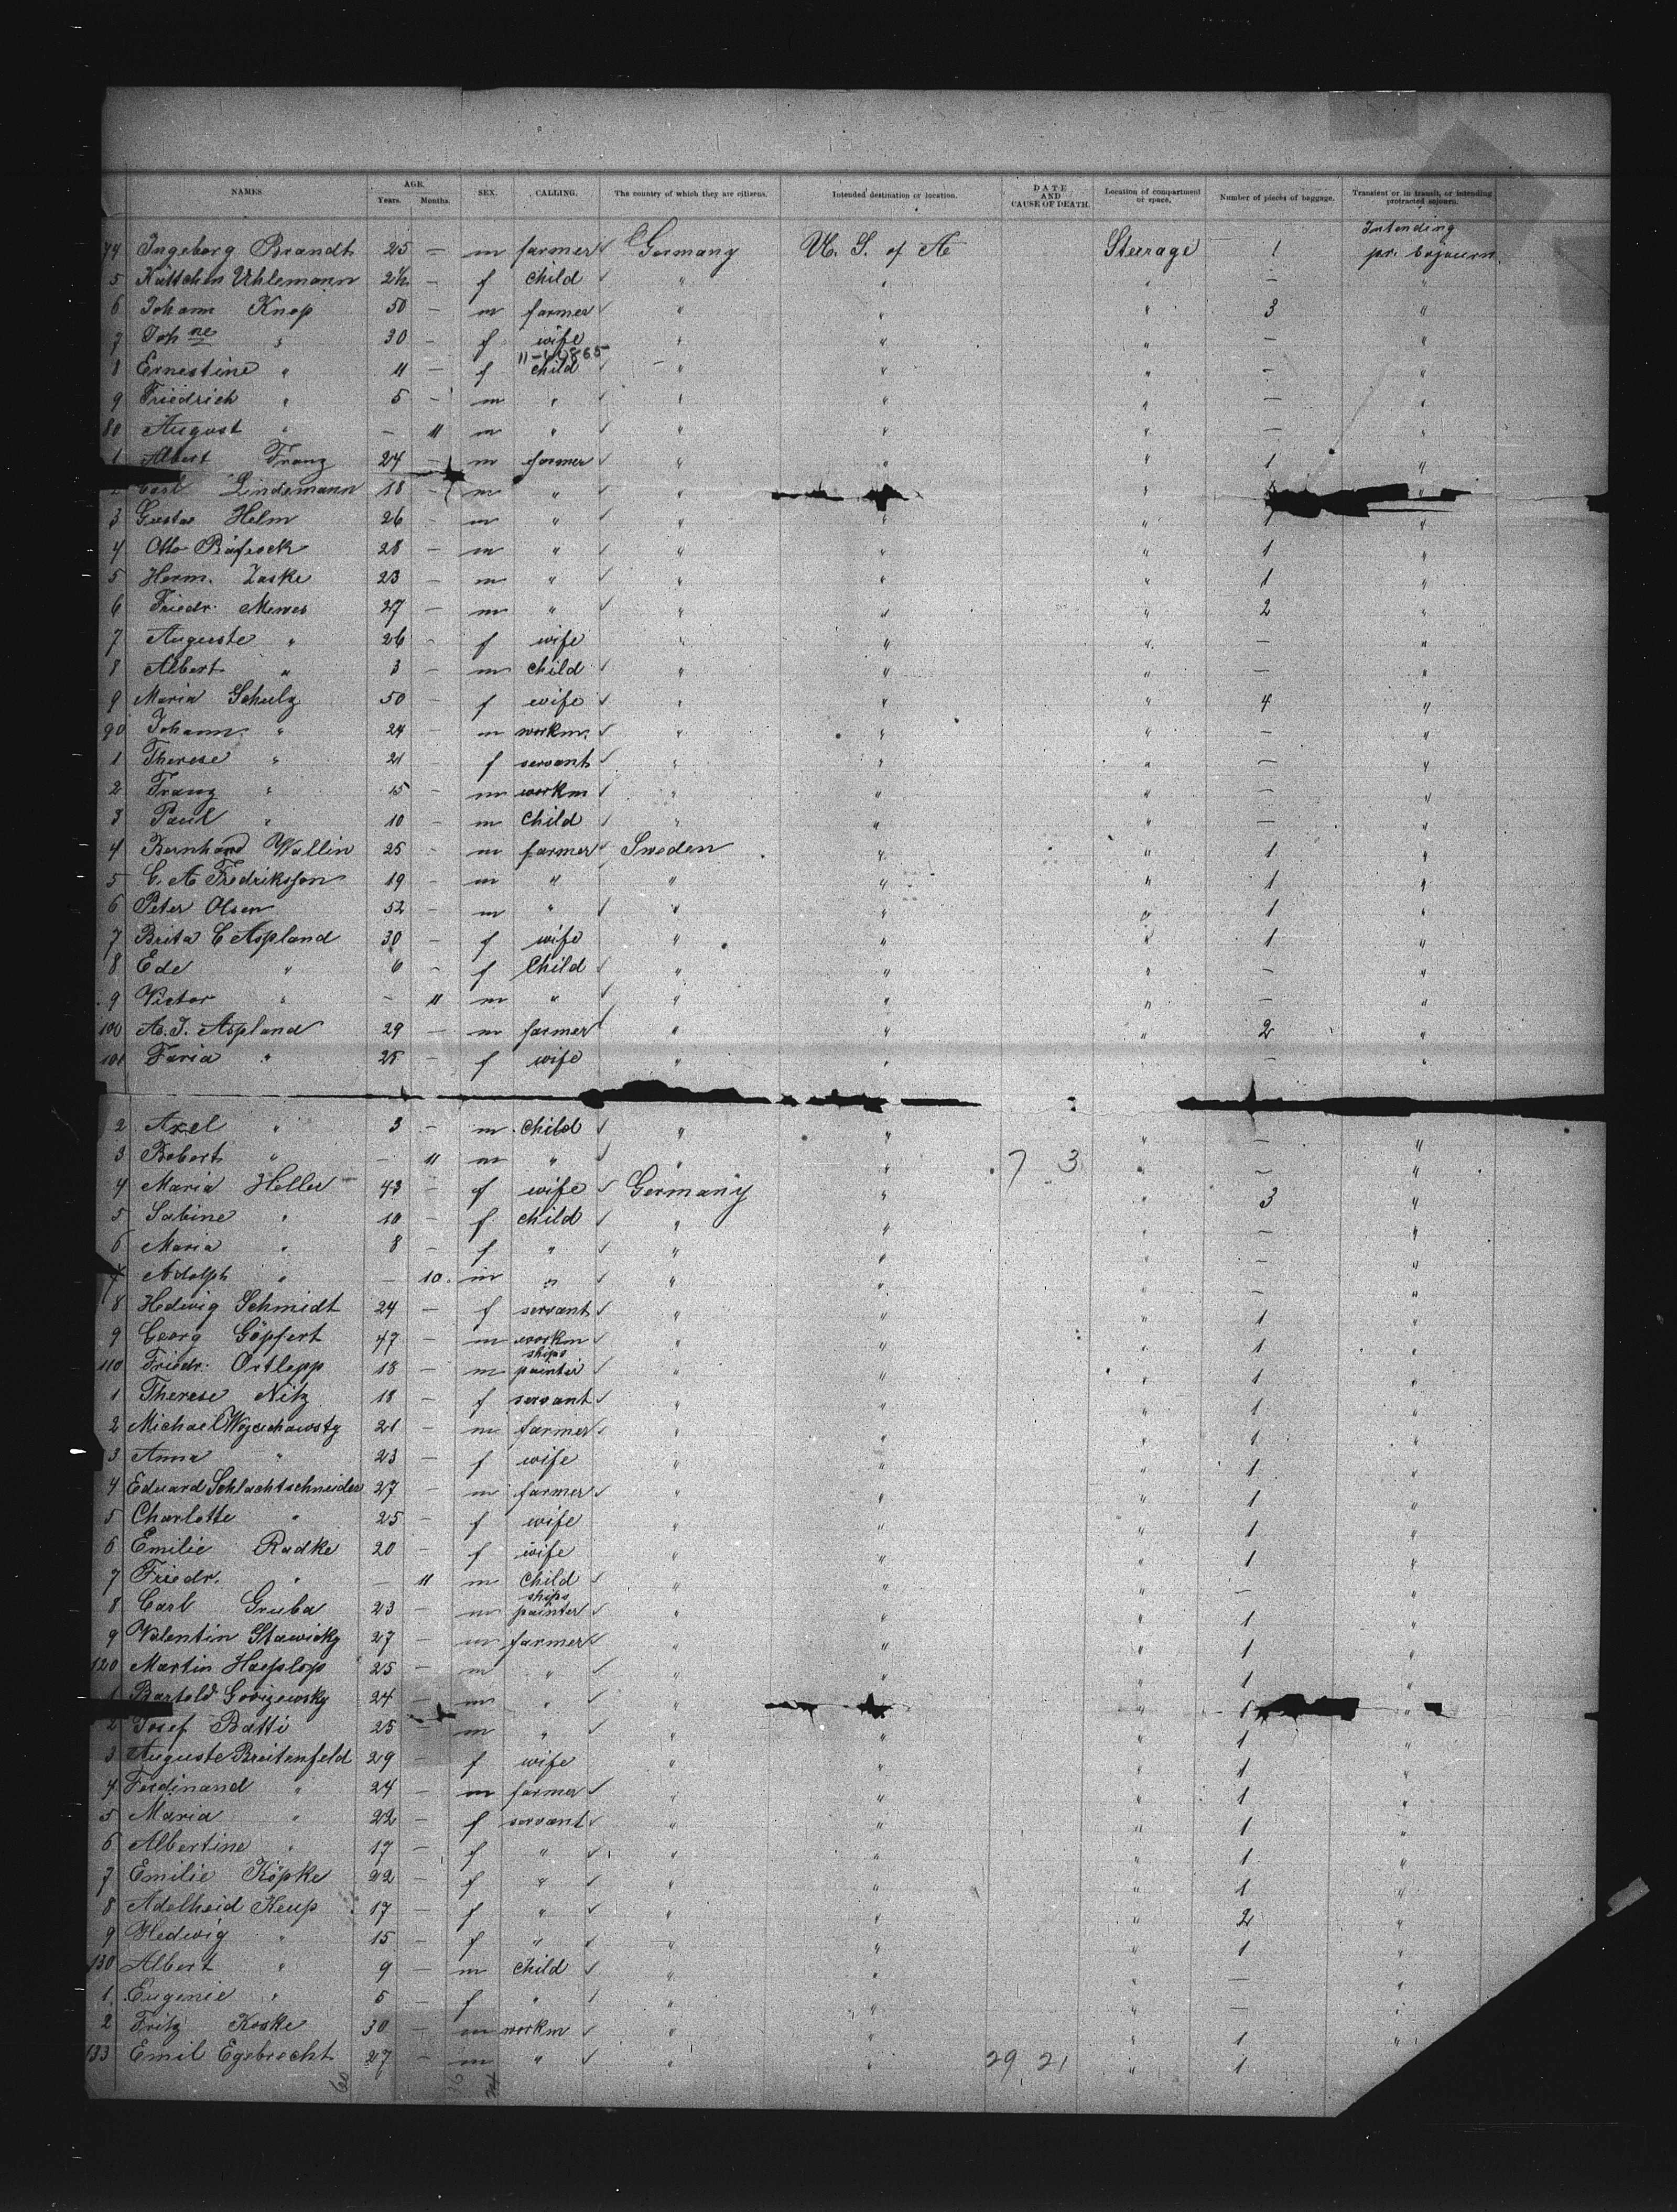 NAMES. AGE. Years. Months. SEX. CALLING. The country of which they are citizens. Intended destination or location. DATE AND CAUSE OF DEATH. Location of compartment or space. Number of pieces of baggage. Transient or in transit, or intending protracted sojourn.
74 Ingeborg Brandt 25 — m farmer ✓ Germany U. S. of A Steerage 1 Intending pr. sojourn.
5 Kättchen Uhlemann 2½ — f child ✓ " " " — "
6 Johann Knop 50 — m farmer ✓ " " " 3 "
7 Joh ne " 30 — f wife " " " — "
8 Ernestine " 11 — f child ✓ " " " — "
9 Friedrich " 5 — m " ✓ " " " — "
80 August " — 11 m " ✓ " " " — "
1 Albert Franz 24 — m farmer ✓ " " " 1 "
2 Carl Lindemann 18 — m " ✓ " " "
3 Gustav Helm 26 — m " ✓ " " " 1 "
4 Otto 28 — m " ✓ " " " 1 "
5 Herm. Laske 23 — m " ✓ " " " 1 "
6 Friedr. Mewes 27 — m " ✓ " " " 2 "
7 Auguste " 26 — f wife " " " — "
8 Albert " 3 — m child ✓ " " " — "
9 Maria Schulz 50 — f wife ✓ " " " 4 "
90 Johann " 24 — m workm. ✓ " " " — "
1 Therese " 21 f servant ✓ " " " — "
2 Franz " 15 — m workm ✓ " " " — "
3 Paul " 10 — m Child ✓ " " " — "
4 Bernhard Wallin 25 — m farmer ✓ Sweden " " 1 "
5 C. A Fredriksson 19 — m " " " " 1 "
6 Peter Olsen 52 — m " ✓ " " " 1 "
7 Brita C Aspland 30 — f wife " " " 1 "
8 Ede " 6 — f Child ✓ " " " — "
9 Victor " — 11 m " ✓ " " " — "
100 A. J. Aspland 29 — m farmer ✓ " " " 2 "
101 Faria " 25 — f wife " " " — "
2 Axel " 3 — m child ✓ " " " — "
3 Robert " — 11 m " ✓ " " 7 3 " — "
4 Maria Heller 43 — f wife ✓ Germany " " 3 "
5 Sabine " 10 — f child ✓ " " " — "
6 Maria " 8 — f " ✓ " " " — "
7 Adolph " — 10. m " ✓ " " " — "
8 Hedwig Schmidt 24 — f servant ✓ " " " 1 "
9 Georg Göpfert 47 — m workm ✓ " " " 1 "
110 Friedr. Ortlepp 18 — m ships painter ✓ " " " 1 "
1 Therese Nitz 18 — f servant ✓ " " " 1 "
2 Michael 21 — m farmer ✓ " " " 1 "
3 Anna " 23 — f wife " " " 1 "
4 Eduard Schlachtschneider 27 — m farmer ✓ " " " 1 "
5 Charlotte " 25 — f wife " " " 1 "
6 Emilie Radke 20 — f wife " " " 1 "
7 Friedr. " — 11 m Child ✓ " " " — "
8 Carl Gruba 23 — m ships painter ✓ " " " 1 "
9 Valentin Stawicky 27 — m farmer ✓ " " " 1 "
120 Martin 25 — m " ✓ " " " 1 "
1 Bartold 24 — m " ✓ " " " 1 "
2 Josef Batti 25 — m " ✓ " " " 1 "
3 Auguste Breitenfeld 29 — f wife " " " 1 "
4 Ferdinand " 24 — m farmer ✓ " " " 1 "
5 Maria " 22 — f servant ✓ " " " 1 "
6 Albertine " 17 — f " ✓ " " " 1 "
7 Emilie Köpke 22 — f " ✓ " " " 1 "
8 Adelheid Keup 17 — f " ✓ " " " 2 "
9 Hedwig " 15 — f " ✓ " " " 1 "
130 Albert " 9 — m child ✓ " " " — "
1 Eugenie " 5 — f " ✓ " " " — "
2 Fritz Koske 30 — m workm ✓ " " " 1 "
133 Emil Egebrecht 27 — m " ✓ " " 29 21 " 1
60